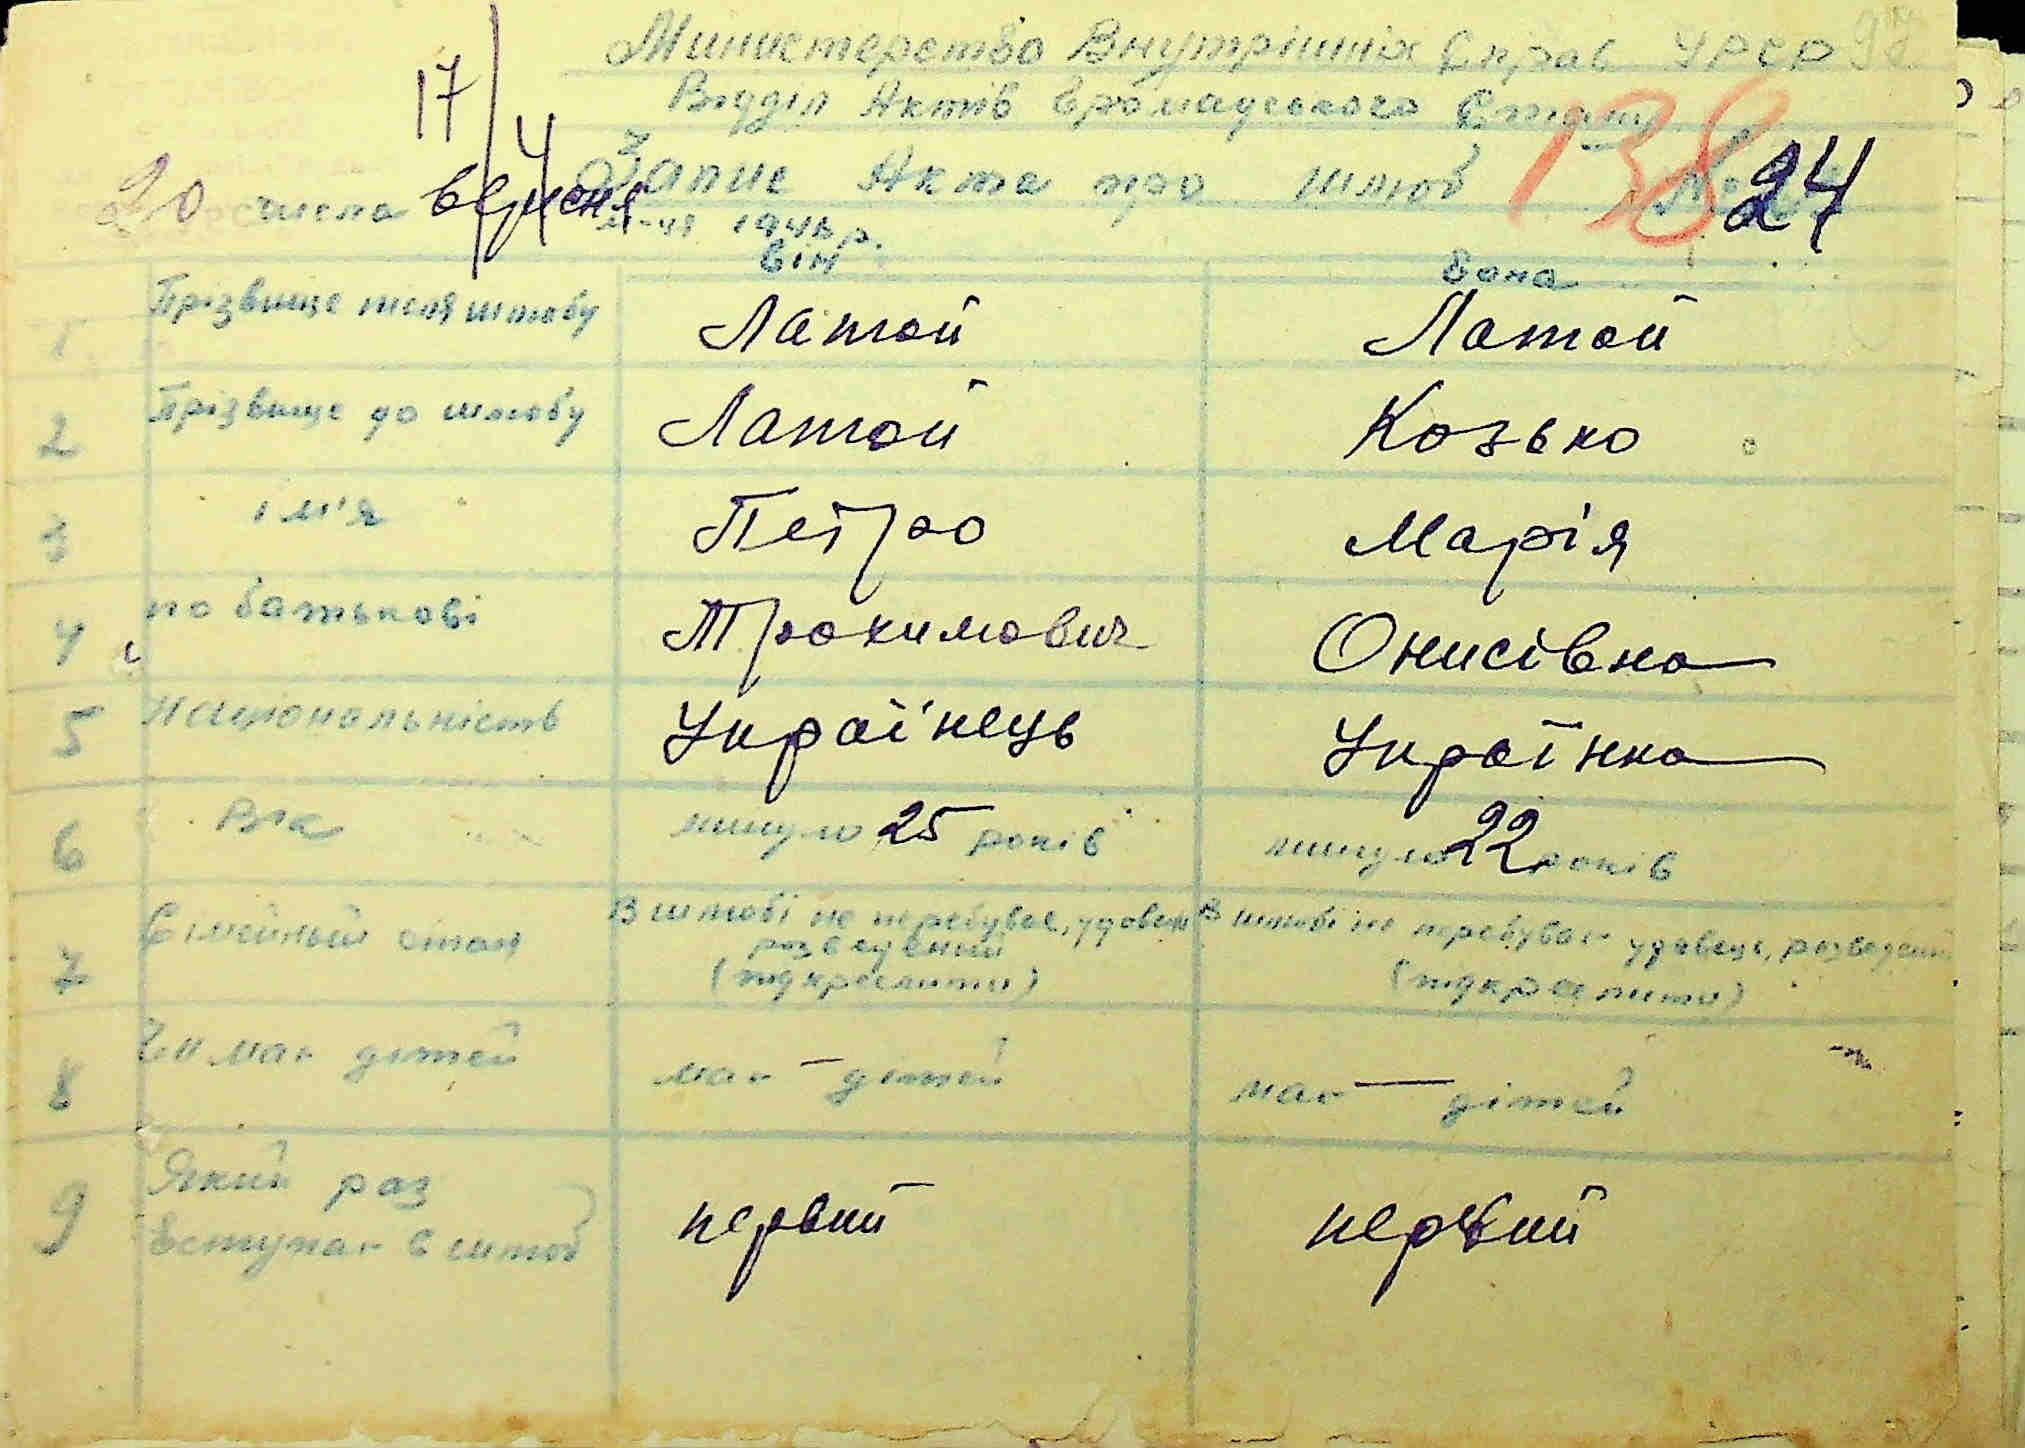 Министерство Внутрішніх Справ УРСР
Відділ Актів Громадського Стану
17/4
138
Запис Акта про шлюб № 24
20 числа вересня м-ця 194 р.
Він Вона
1 Прізвище після шлюбу Латой Латой
2 Прізвище до шлюбу Латой Козько
3 ім'я Петро Марія
4 по батькові Трохимович Онисівна
5 Національність Українець Українка
6 Вік минуло 25 років минуло 22 років
7 Сімейний стан В шлюбі не перебував, удовець розведений (підкреслити) В шлюбі не перебував удовець, розведений (підкреслити)
8 Чи має дітей має — дітей має — дітей
9 Який раз вступає в шлюб первий первий